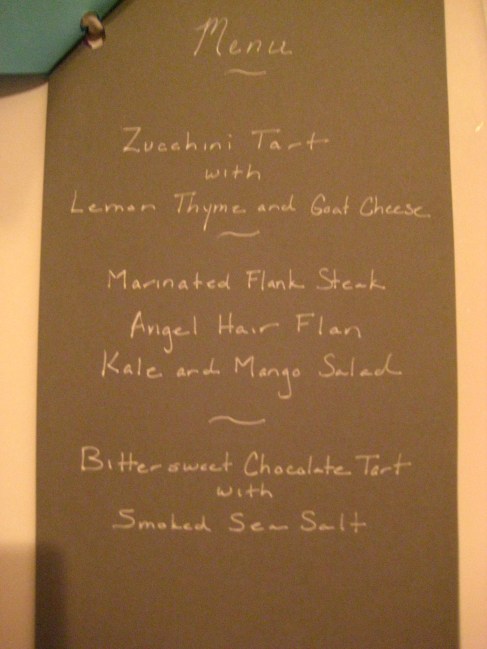 Menu
Zucchini Tart
with
Lemon Thyme and Goat Cheese
Marinated Flank Steak
Angel Hair Flan
Kale and Mango Salad
Bittersweet Chocolate Tart
with
Smoked Sea Salt